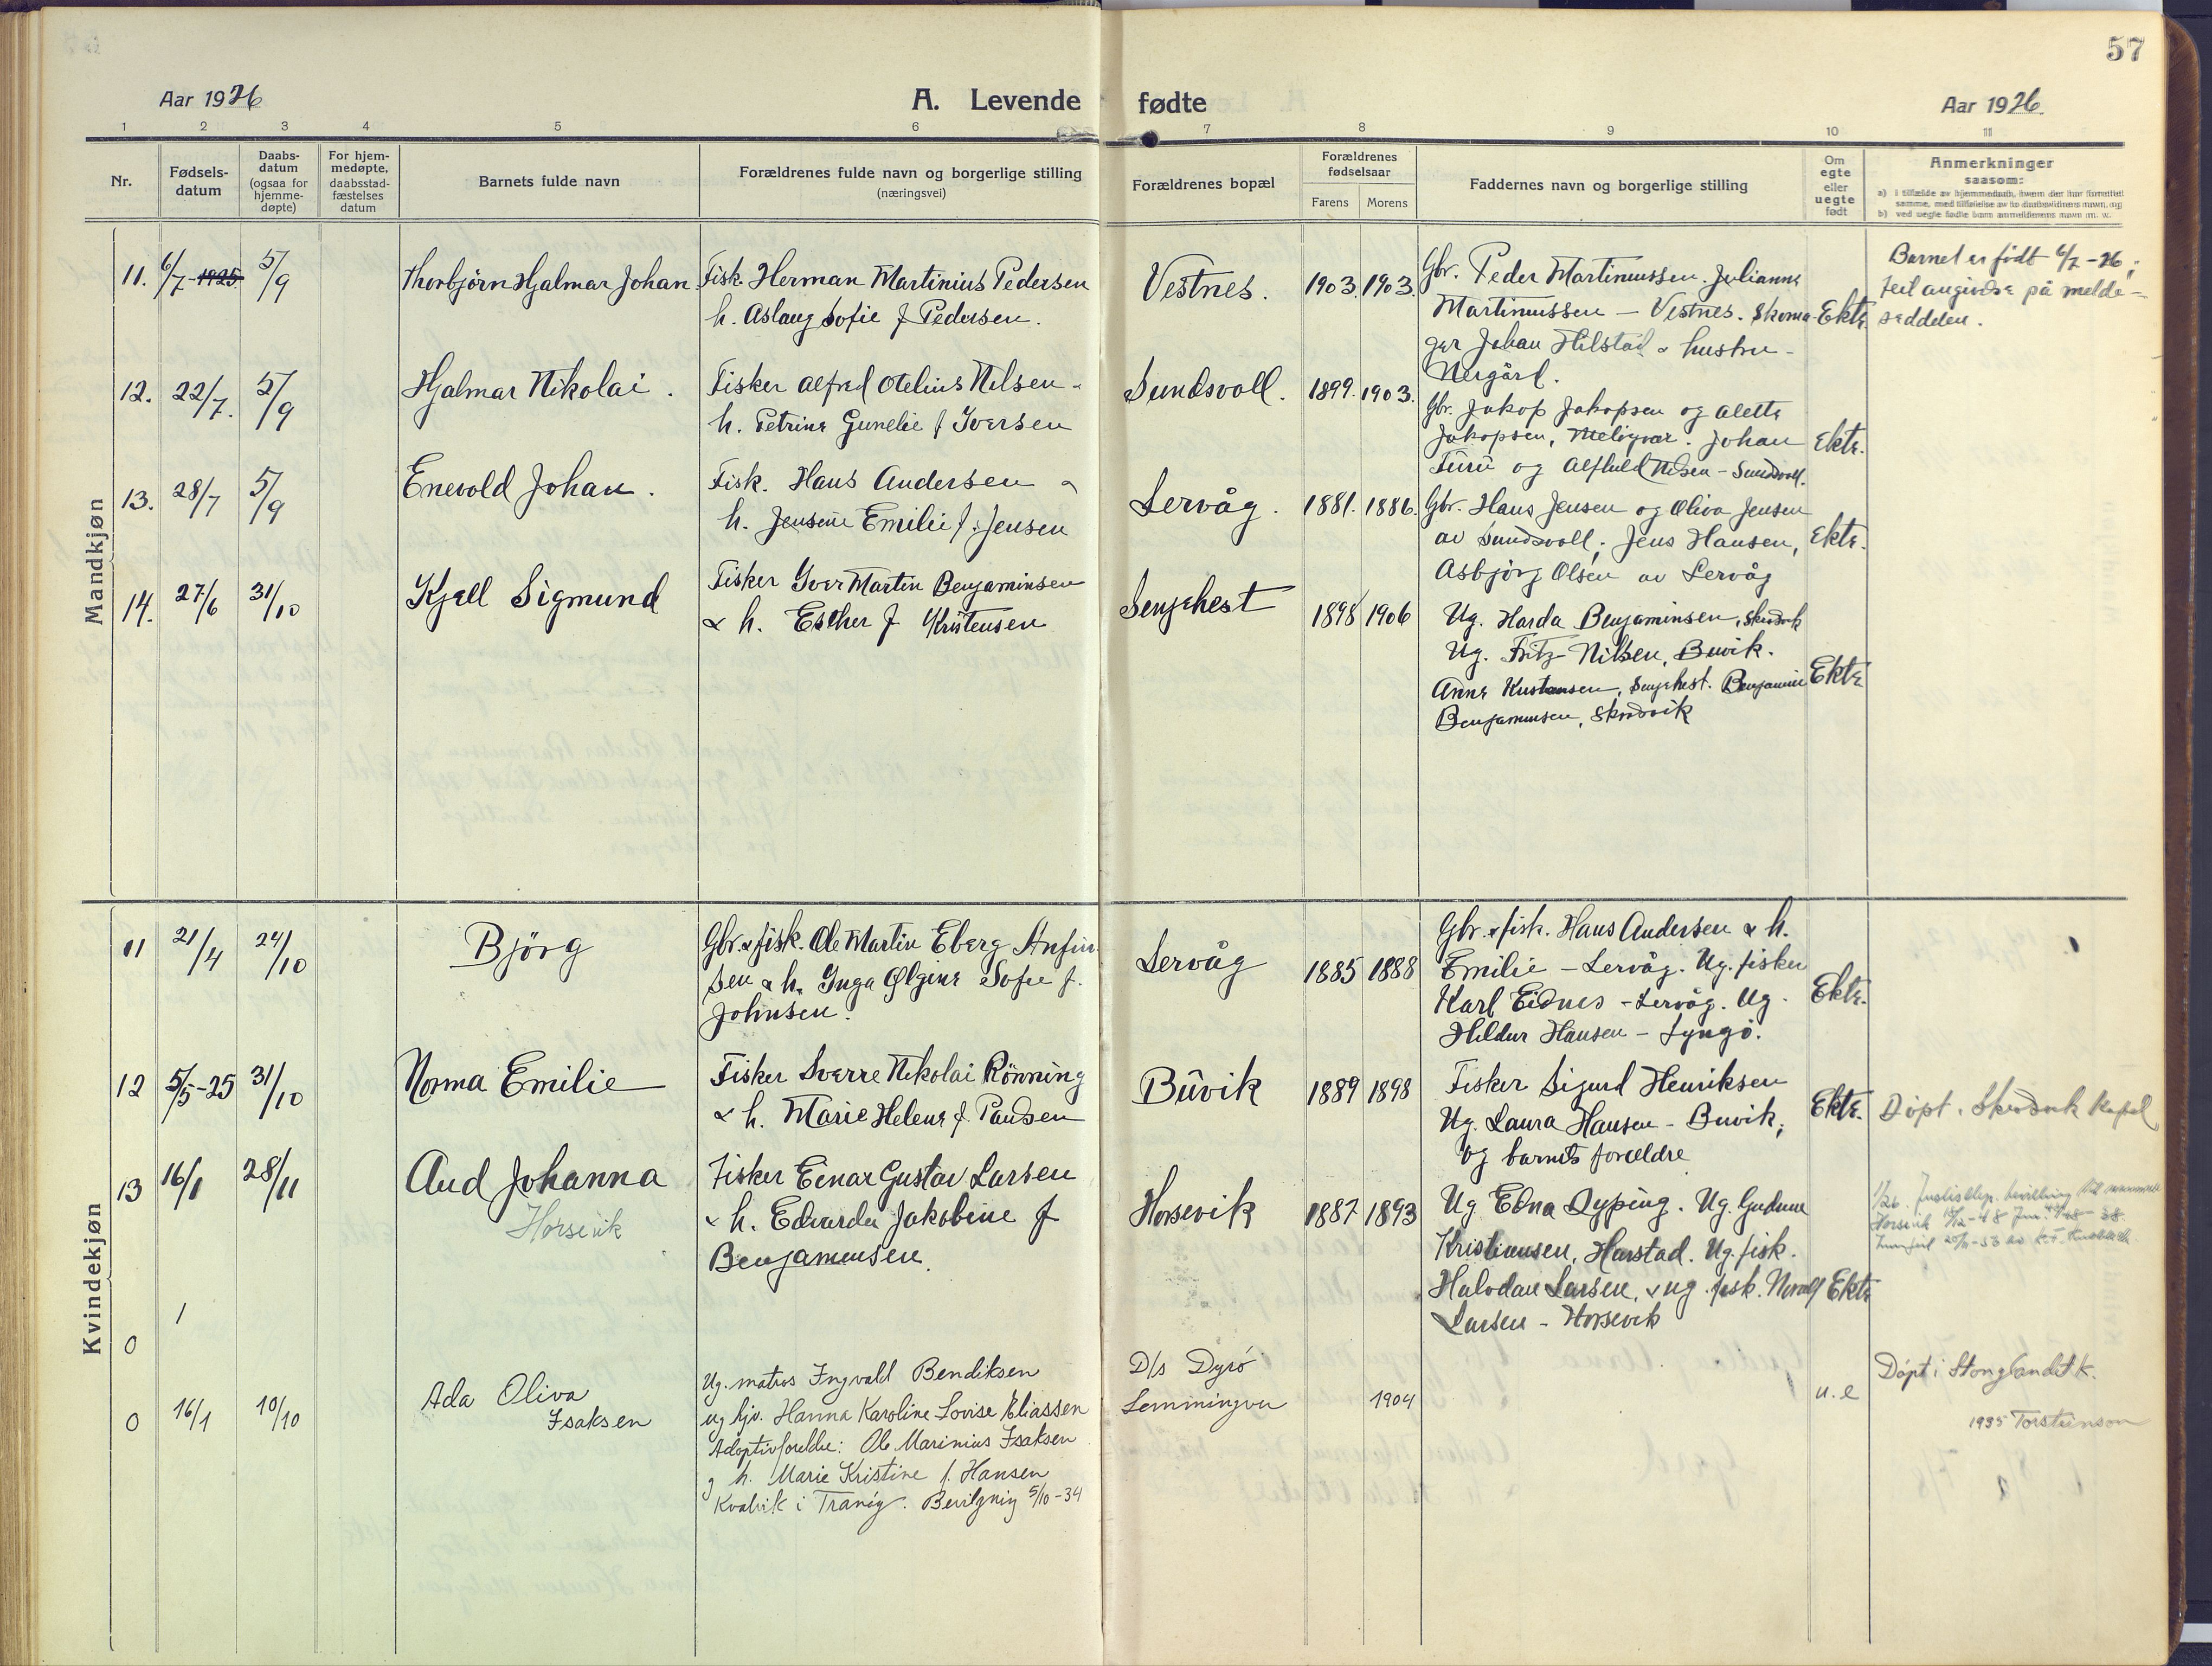 57
Aar 1926
A. Levende fødte
Aar 1926.
1 2 3 4 5 6 7 8 9 10 11
Nr.
Fødsels-
datum
Daabs-
datum
(ogsaa for
hjemme-
døpte)
For hjem-
medøpte,
daabsstad-
fæstelses
datum
Barnets fulde navn
Forældrenes fulde navn og borgerlige stilling
(næringsvei)
Forældrenes bopæl
Forældrenes
fødselsaar
Farens Morens
Faddernes navn og borgerlige stilling
Om
egte
eller
uegte
født
Anmerkninger
saasom:
a) i tilfælde av hjemmedaab, hvem der har forrettet
samme, med tilføielse av to daabsvidners navn, og
b) ved uegte fødte barn anmelderens navn m. v.
Mandkjøn
11. 6/7-1925 5/9
Thorbjörn Hjalmar Johan
Fisk. Herman Martinius Pedersen
h. Aslaug Sofie f Pedersen.
Vestnes.
1903. 1903.
Gbr. Peder Martinussen. Julianne
Martinussen - Vestnes. Skoma-
ger Johan Hilstad & hustru -
Nergård.
Ekte.
Barnet er født 6/7-26;
feil angivelse på melde-
seddelen.
12. 22/7. 5/9
Hjalmar Nikolai.
Fisker Alfred Otelius Nilsen -
h. Petrine Gunelie f Iversen
Sundsvoll.
1899. 1903.
Gbr. Jakop Jakopsen og Alette
Jakopsen, Meløyvær. Johan
Furu og Alfhild Nilsen - Sundsvoll.
Ekte.
13. 28/7 5/9
Enevold Johan.
Fisk. Hans Andersen &
h. Jensine Emilie f. Jensen
Lervåg.
1881. 1886.
Gbr. Hans Jensen og Oliva Jensen
av Sundsvoll; Jens Hansen,
Asbjörg Olsen av Lervåg
Ekte.
14. 27/6 31/10
Kjell Sigmund
Fisker Iver Martin Benjaminsen
& h. Esther f Kristensen
Senjehest
1898 1906
Ug. Harda Benjaminsen, Skrovik
Ug. Fritz Nilsen, Buvik.
Anne Kristensen, Senjehest. Benjamin
Benjaminsen, Skrovik
Ekte
Kvindekjøn
11 21/4 24/10
Björg
Gbr. & fisk. Ole Martin Eberg Anfin
sen & h. Inga Olgine Sofie f.
Johnsen.
Lervåg
1885 1888
Gbr. & fisk. Hans Andersen & h.
Emilie - Lervåg. Ug. fisker
Karl Eidnes - Lervåg. Ug.
Hildur Hansen - Lyngö.
Ekte.
12 5/5-25 31/10
Norma Emilie
Fisker Sverre Nikolai Rönning
& h. Marie Helene f. Paulsen
Buvik
1889 1898
Fisker Sigurd Henriksen
Ug. Laura Hansen - Buvik;
og barnets forældre
Ekte.
Döpt i Skrovik Kapel
13 16/1 28/11
Aud Johanna
Horsevik
Fisker Einar Gustav Larsen
& h. Edvarda Jakobine f
Benjaminsen.
Horsevik
1887 1893
Ug Edna Dyping. Ug. Gudrun
Kristiansen, Harstad. Ug. fisk.
Halvdan Larsen, & ug. fisk. Norolf
Larsen - Horsevik
Ekte
Justisdep. bevilling til
Horsevik
0 /
0 16/1 10/10
Ada Oliva
Isaksen
Ug. matros Ingvald Bendiksen
ug tjv. Hanna Karoline Lovise Eliassen
Adoptivforeldre: Ole Marinius Isaksen
g h. Marie Kristine f. Hansen
Kvalvik i Tranöy. Bevilgnig 5/10-34
D/s Dyrö
Lemmingvær
1904
u.e
Döpt i Stonglandet k.
1935 Torsteinson